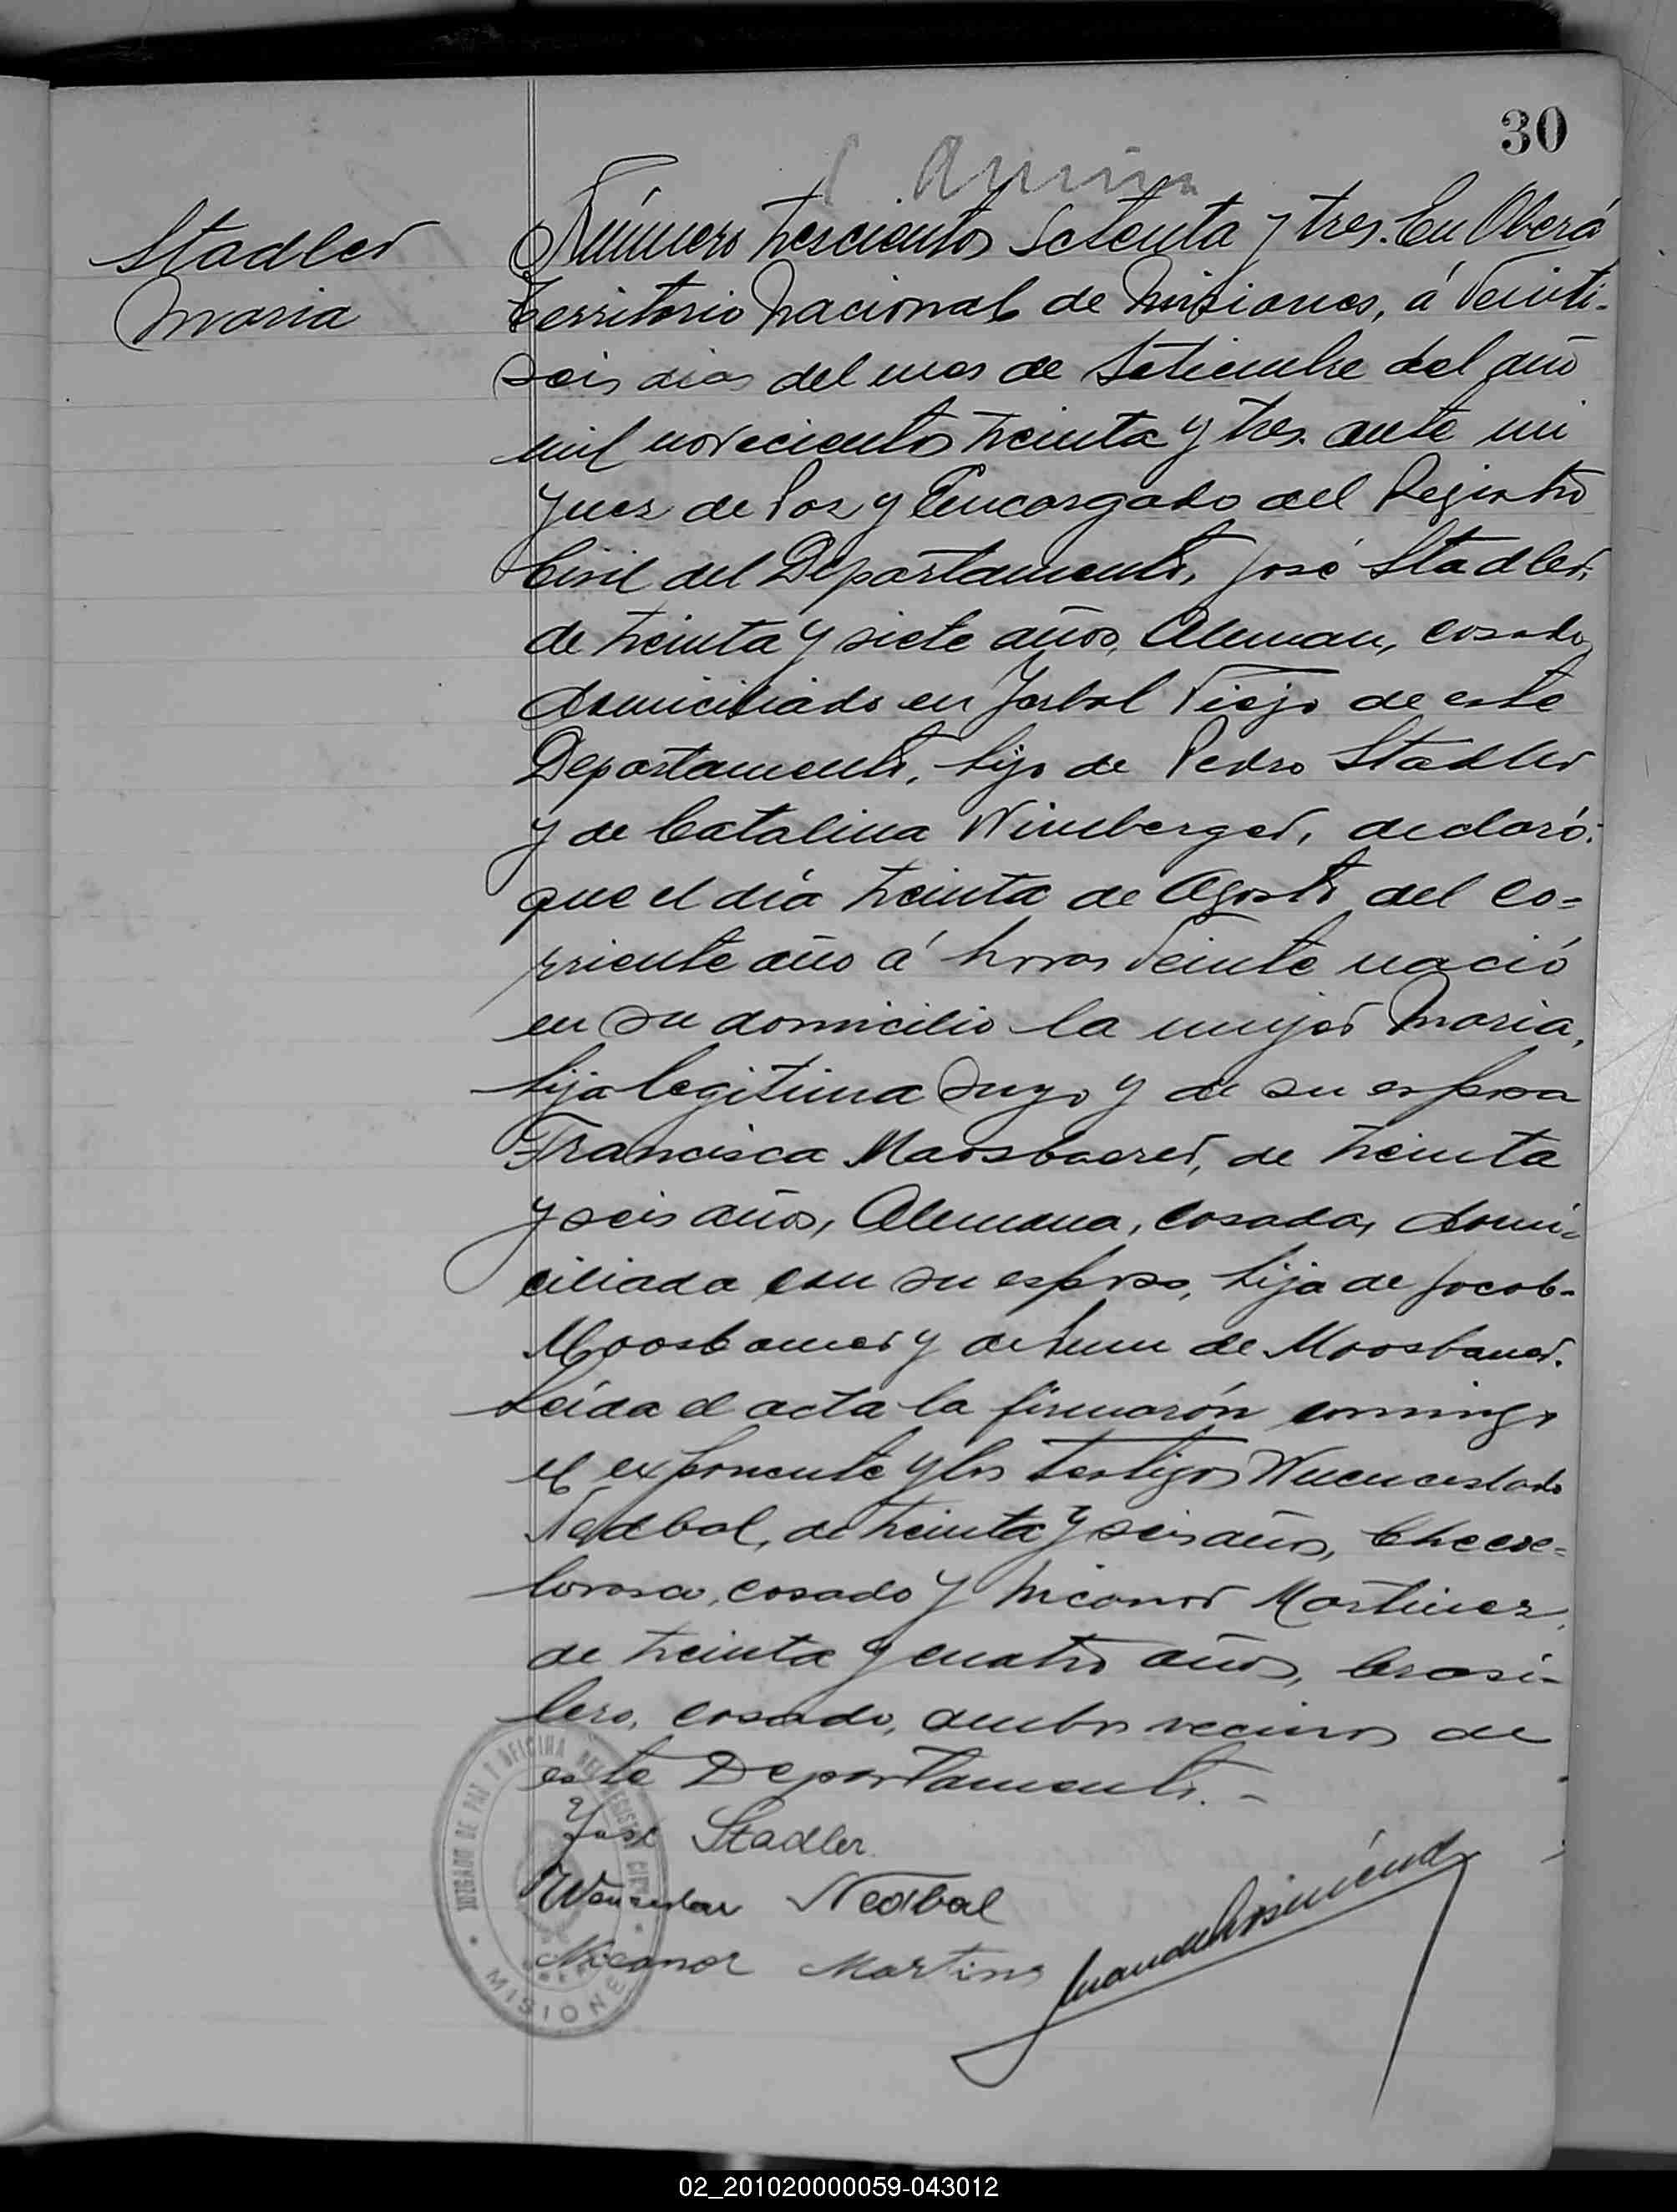 30
Stadler
Maria
Número trescientos setenta y tres. En Oberá
Territorio Nacional de Misiones, á veinti-
seis dias del mes de Setiembre del año
mil novecientos treinta y tres. ante mi
Juez de Paz y Encargado del Registro
Civil del Departamento, José Stadler,
de treinta y siete años, Aleman, casado,
domiciliado en Yerbal Viejo de este
Departamento, hijo de Pedro Stadler
y de Catalina Wimberger, declaró:
que el día treinta de Agosto del co-
rriente año á horas veinte nació
en su domicilio la mujer Maria,
hija legitima suya y de su esposa
Francisca Maosbaered, de treinta
y seis años, Alemana, casada, domi-
ciliada con su esposo, hija de Jacob-
Moosbamer y de de Moosbauer.
Leída el acta la firmarón conmigo
el exponente y los testigos Wuenceslado
Nedbal, de treinta y seis años, Checoe-
lovaca, casado y Nicanor Martinez,
de treinta y cuatro años, brasi-
lero, casado, ambos vecinos de
este Departamento. -
José Stadler
Wenzeslau Nedbal
Nicanor Martins
JUZGADO DE PAZ Y OFICINA DEL REGISTRO CIVIL
MISIONES
02_201020000059-043012